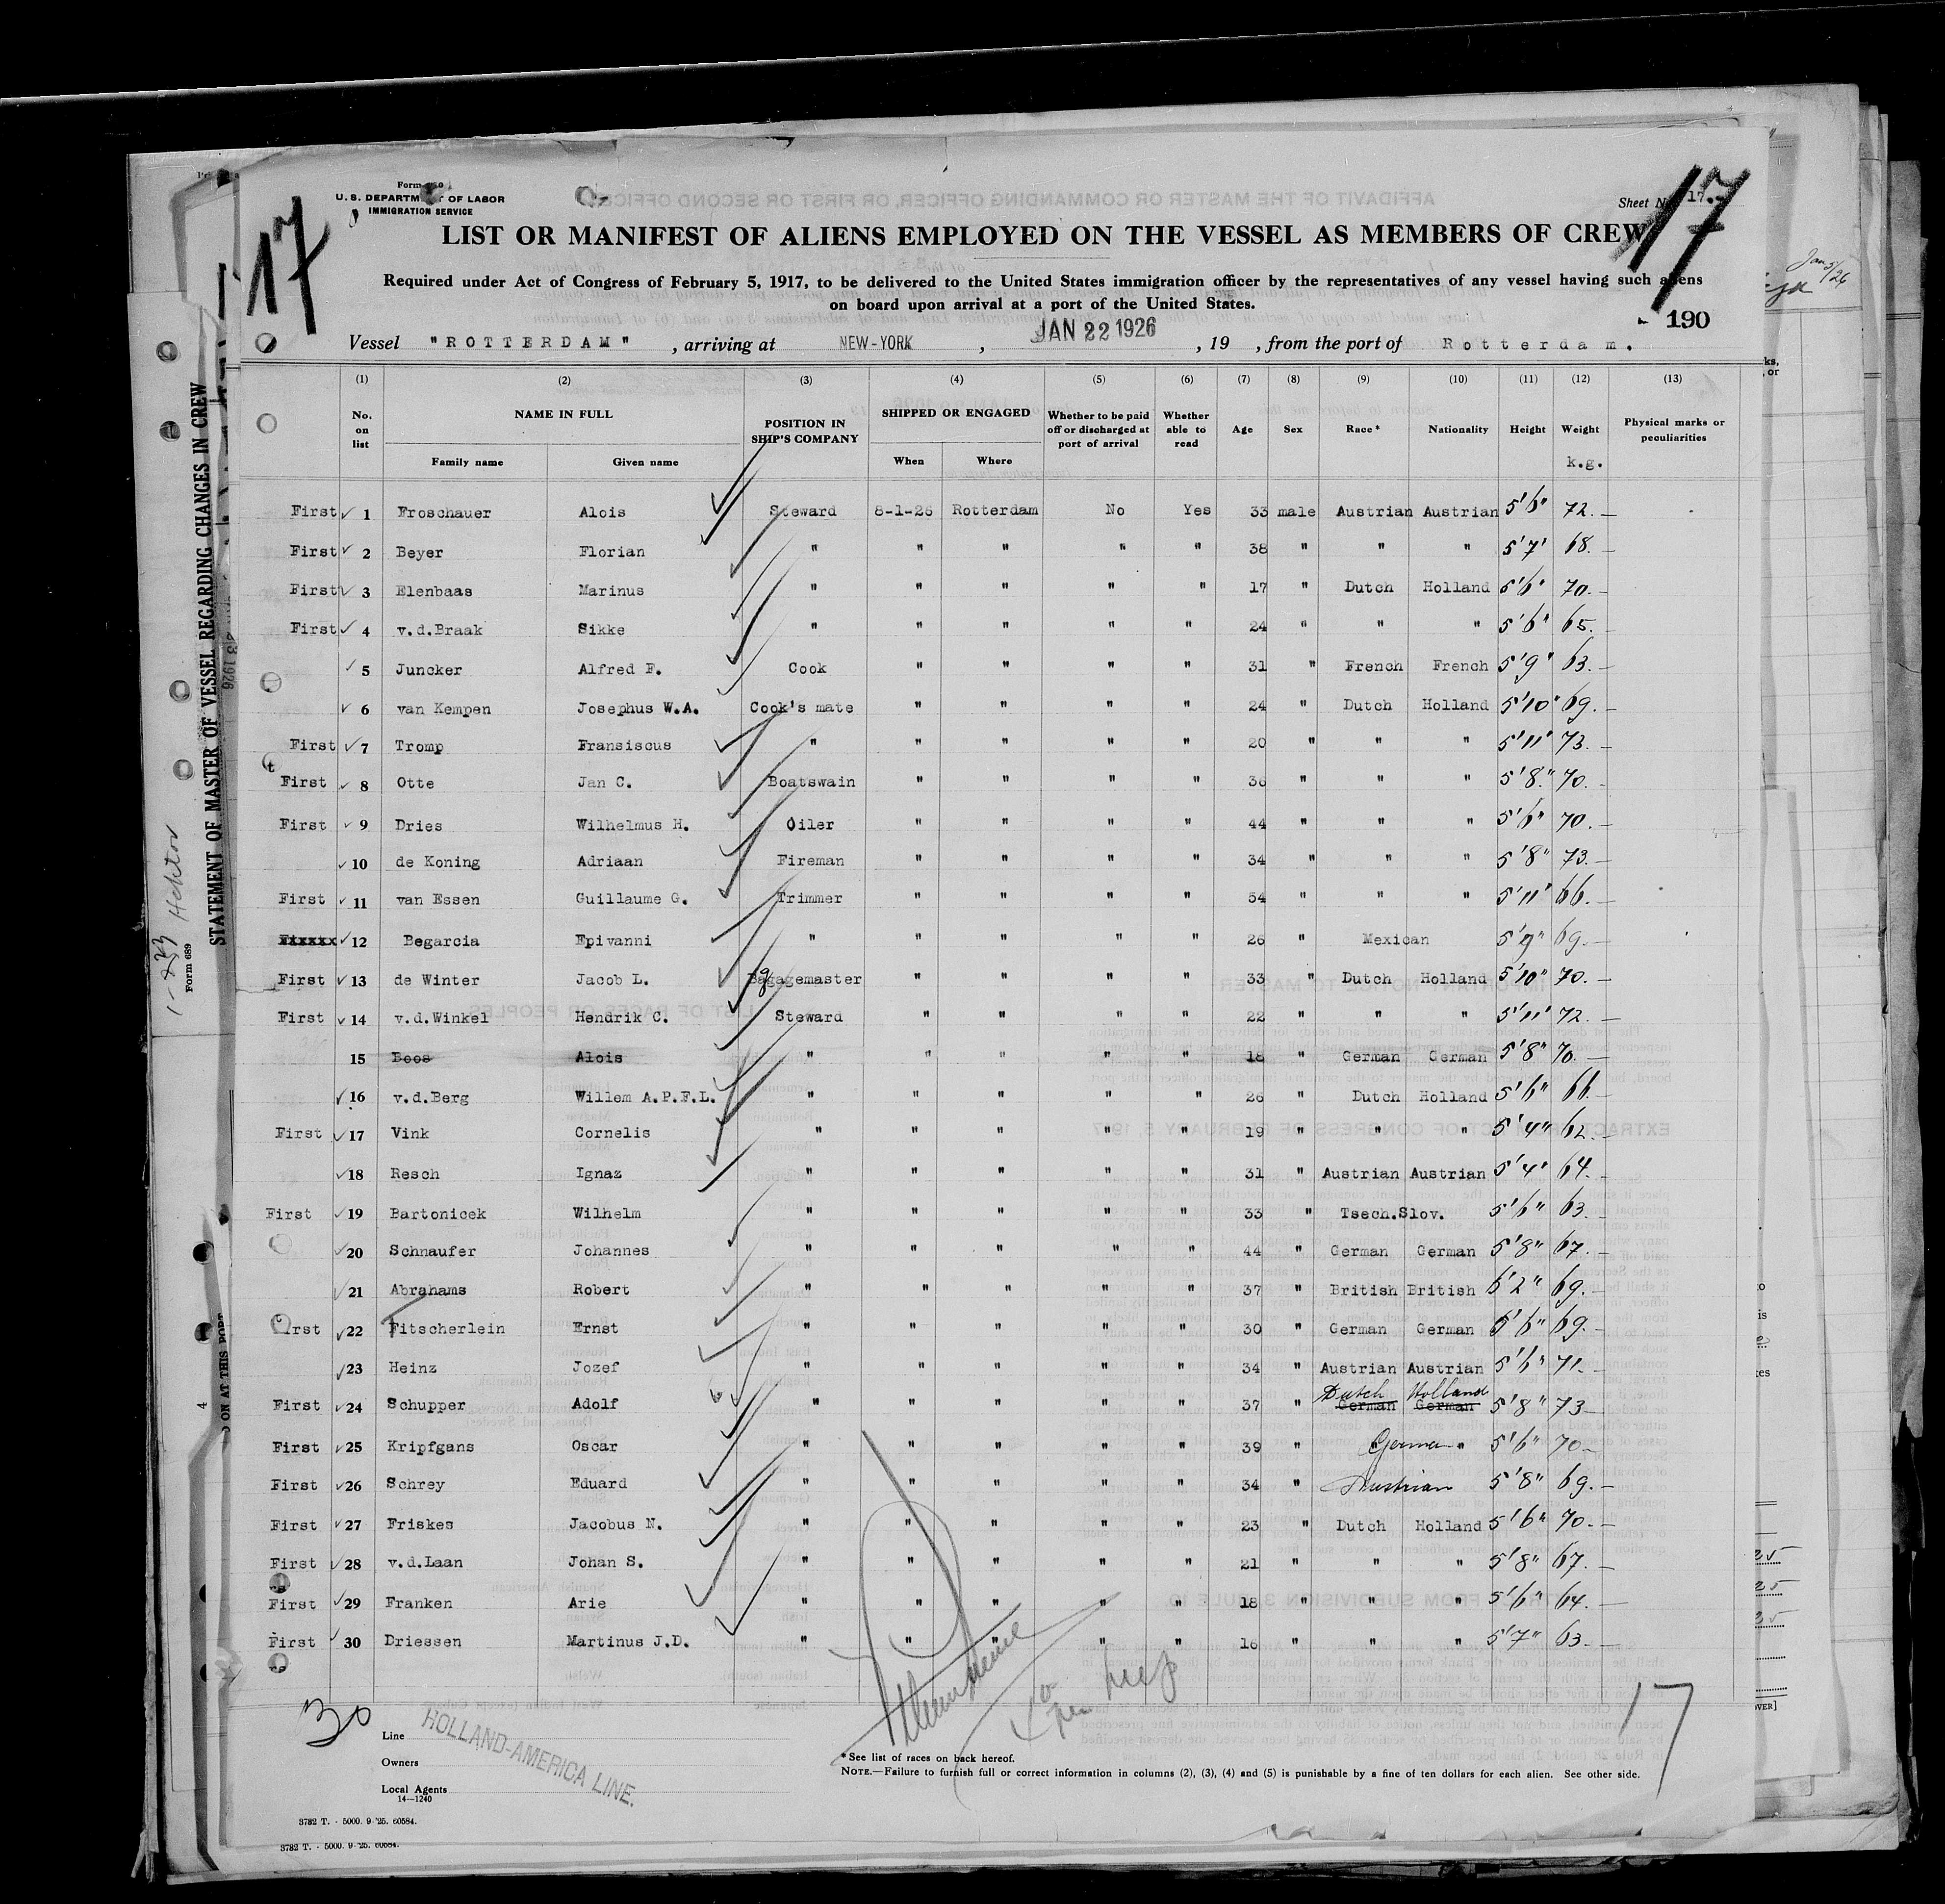 Form 680
U. S. DEPARTMENT OF LABOR
IMMIGRATION SERVICE
Sheet No. 17.
17
17
LIST OR MANIFEST OF ALIENS EMPLOYED ON THE VESSEL AS MEMBERS OF CREW
Required under Act of Congress of February 5, 1917, to be delivered to the United States immigration officer by the representatives of any vessel having such aliens
on board upon arrival at a port of the United States.
190
Vessel "ROTTERDAM" , arriving at NEW-YORK , JAN 22 1926 , 19 , from the port of Rotterdam.
(1) (2) (3) (4) (5) (6) (7) (8) (9) (10) (11) (12) (13)
No. on list NAME IN FULL Family name Given name POSITION IN SHIP'S COMPANY SHIPPED OR ENGAGED When Where Whether to be paid off or discharged at port of arrival Whether able to read Age Sex Race* Nationality Height Weight k.g. Physical marks or peculiarities
First ✓ 1 Froschauer Alois Steward 8-1-26 Rotterdam No Yes 33 male Austrian Austrian 5'6" 72.—
First ✓ 2 Beyer Florian " " " " " 38 " " " 5'7' 68.—
First ✓ 3 Elenbaas Marinus " " " " " 17 " Dutch Holland 5'6" 70.—
First ✓ 4 v.d.Braak Sikke " " " " " 24 " " " 5'6" 65.—
✓ 5 Juncker Alfred F. Cook " " " " 31 " French French 5'9" 63.—
✓ 6 van Kempen Josephus W.A. Cook's mate " " " " 24 " Dutch Holland 5'10" 69.—
First ✓ 7 Tromp Fransiscus " " " " " 20 " " " 5'11" 73.—
First ✓ 8 Otte Jan C. Boatswain " " " " 36 " " " 5'8." 70.—
First ✓ 9 Dries Wilhelmus H. Oiler " " " " 44 " " " 5'6" 70.—
✓ 10 de Koning Adriaan Fireman " " " " 34 " " " 5'8" 73.—
First ✓ 11 van Essen Guillaume G. Trimmer " " " " 54 " " " 5'11" 66.—
Fixxxx ✓ 12 Begarcia Epivanni " " " " " 26 " Mexican 5'9" 69.—
First ✓ 13 de Winter Jacob L. Bagagemaster " " " " 33 " Dutch Holland 5'10" 70.—
First ✓ 14 v.d.Winkel Hendrik C. Steward " " " " 22 " " " 5'11" 72.—
15 Boos Alois " " " " " 18 " German German 5'8" 70.—
✓ 16 v.d.Berg Willem A.P.F.L. " " " " " 26 " Dutch Holland 5'6" 66.—
First ✓ 17 Vink Cornelis " " " " " 19 " " " 5'4" 62.—
✓ 18 Resch Ignaz " " " " " 31 " Austrian Austrian 5'4" 64.—
First ✓ 19 Bartonicek Wilhelm " " " " " 33 " Tsech.Slov. 5'6" 63.—
✓ 20 Schnaufer Johannes " " " " " 44 " German German 5'8" 67.—
✓ 21 Abrahams Robert " " " " " 37 " British British 6'2" 69.—
First ✓ 22 Fitscherlein Ernst " " " " " 30 " German German 5'6" 69.—
✓ 23 Heinz Jozef " " " " " 34 " Austrian Austrian 5'6" 71.—
Dutch Holland
First ✓ 24 Schupper Adolf " " " " " 37 " German German 5'8" 73—
First ✓ 25 Kripfgans Oscar " " " " " 39 " German " 5'6" 70—
First ✓ 26 Schrey Eduard " " " " " 34 " Austrian 5'8" 69.—
First ✓ 27 Friskes Jacobus N. " " " " " 23 " Dutch Holland 5'6" 70.—
First ✓ 28 v.d.Laan Johan S. " " " " " 21 " " " 5'8" 67.—
First ✓ 29 Franken Arie " " " " " 18 " " " 5'6" 64.—
First ✓ 30 Driessen Martinus J.D. " " " " " 16 " " " 5'7" 63.—
17
Line
HOLLAND-AMERICA LINE.
Owners
Local Agents
14—1240
*See list of races on back hereof.
NOTE.—Failure to furnish full or correct information in columns (2), (3), (4) and (5) is punishable by a fine of ten dollars for each alien. See other side.
3782 T. - 5000. 9-'25. 60584.
3782 T. - 5000. 9-'25. 60584.
STATEMENT OF MASTER OF VESSEL REGARDING CHANGES IN CREW
Form 689
Hektor